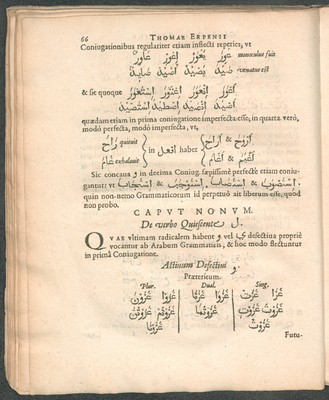 66 THOMAE ERPENII
Coniugationibus regulariter etiam inflecti reperies, vt
عَوِرَ يَعْوَرُ إِعْوَرْ عَاوِرٌ monoculus fuit
صَيِدَ يَصْيَدُ إِصْيَدْ صَايِدٌ
& sic quoque
quædam etiam in prima coniugatione imperfecta esse, in quarta verò,
modò perfecta, modò imperfecta, vt,
رَاحَ quieuit أَرْوَحَ & أَرَاحَ
in افعل habet
غَامَ exhalauit أَغْيَمَ & أَغَامَ
Sic concaua و in decima Coniug. sæpissimè perfectè etiam coniu-
gantur: vt اِسْتَصْوَبَ & اِسْتَصَابَ. اِسْتَجْوَبَ & اِسْتَجَابَ:
quin non-nemo Grammaticorum id perpetuò ait liberum esse, quod
non probo.
CAPVT NONVM.
De verbo Quiescente ل.
QVAE vltimam radicalem habent و vel ي defectiua propriè
vocantur ab Arabum Grammaticis, & hoc modo flectuntur
in primâ Coniugatione.
Actiuum Defectiui و.
Præteritum.
Plur. Dual. Sing.
غَزَوْا غَزَوْنَ غَزَوَا غَزَتَا غَزَا غَزَتْ
غَزَوْتُمْ غَزَوْتُنَّ غَزَوْتُمَا غَزَوْتَ غَزَوْتِ
غَزَوْنَا غَزَوْتُ
Futu-